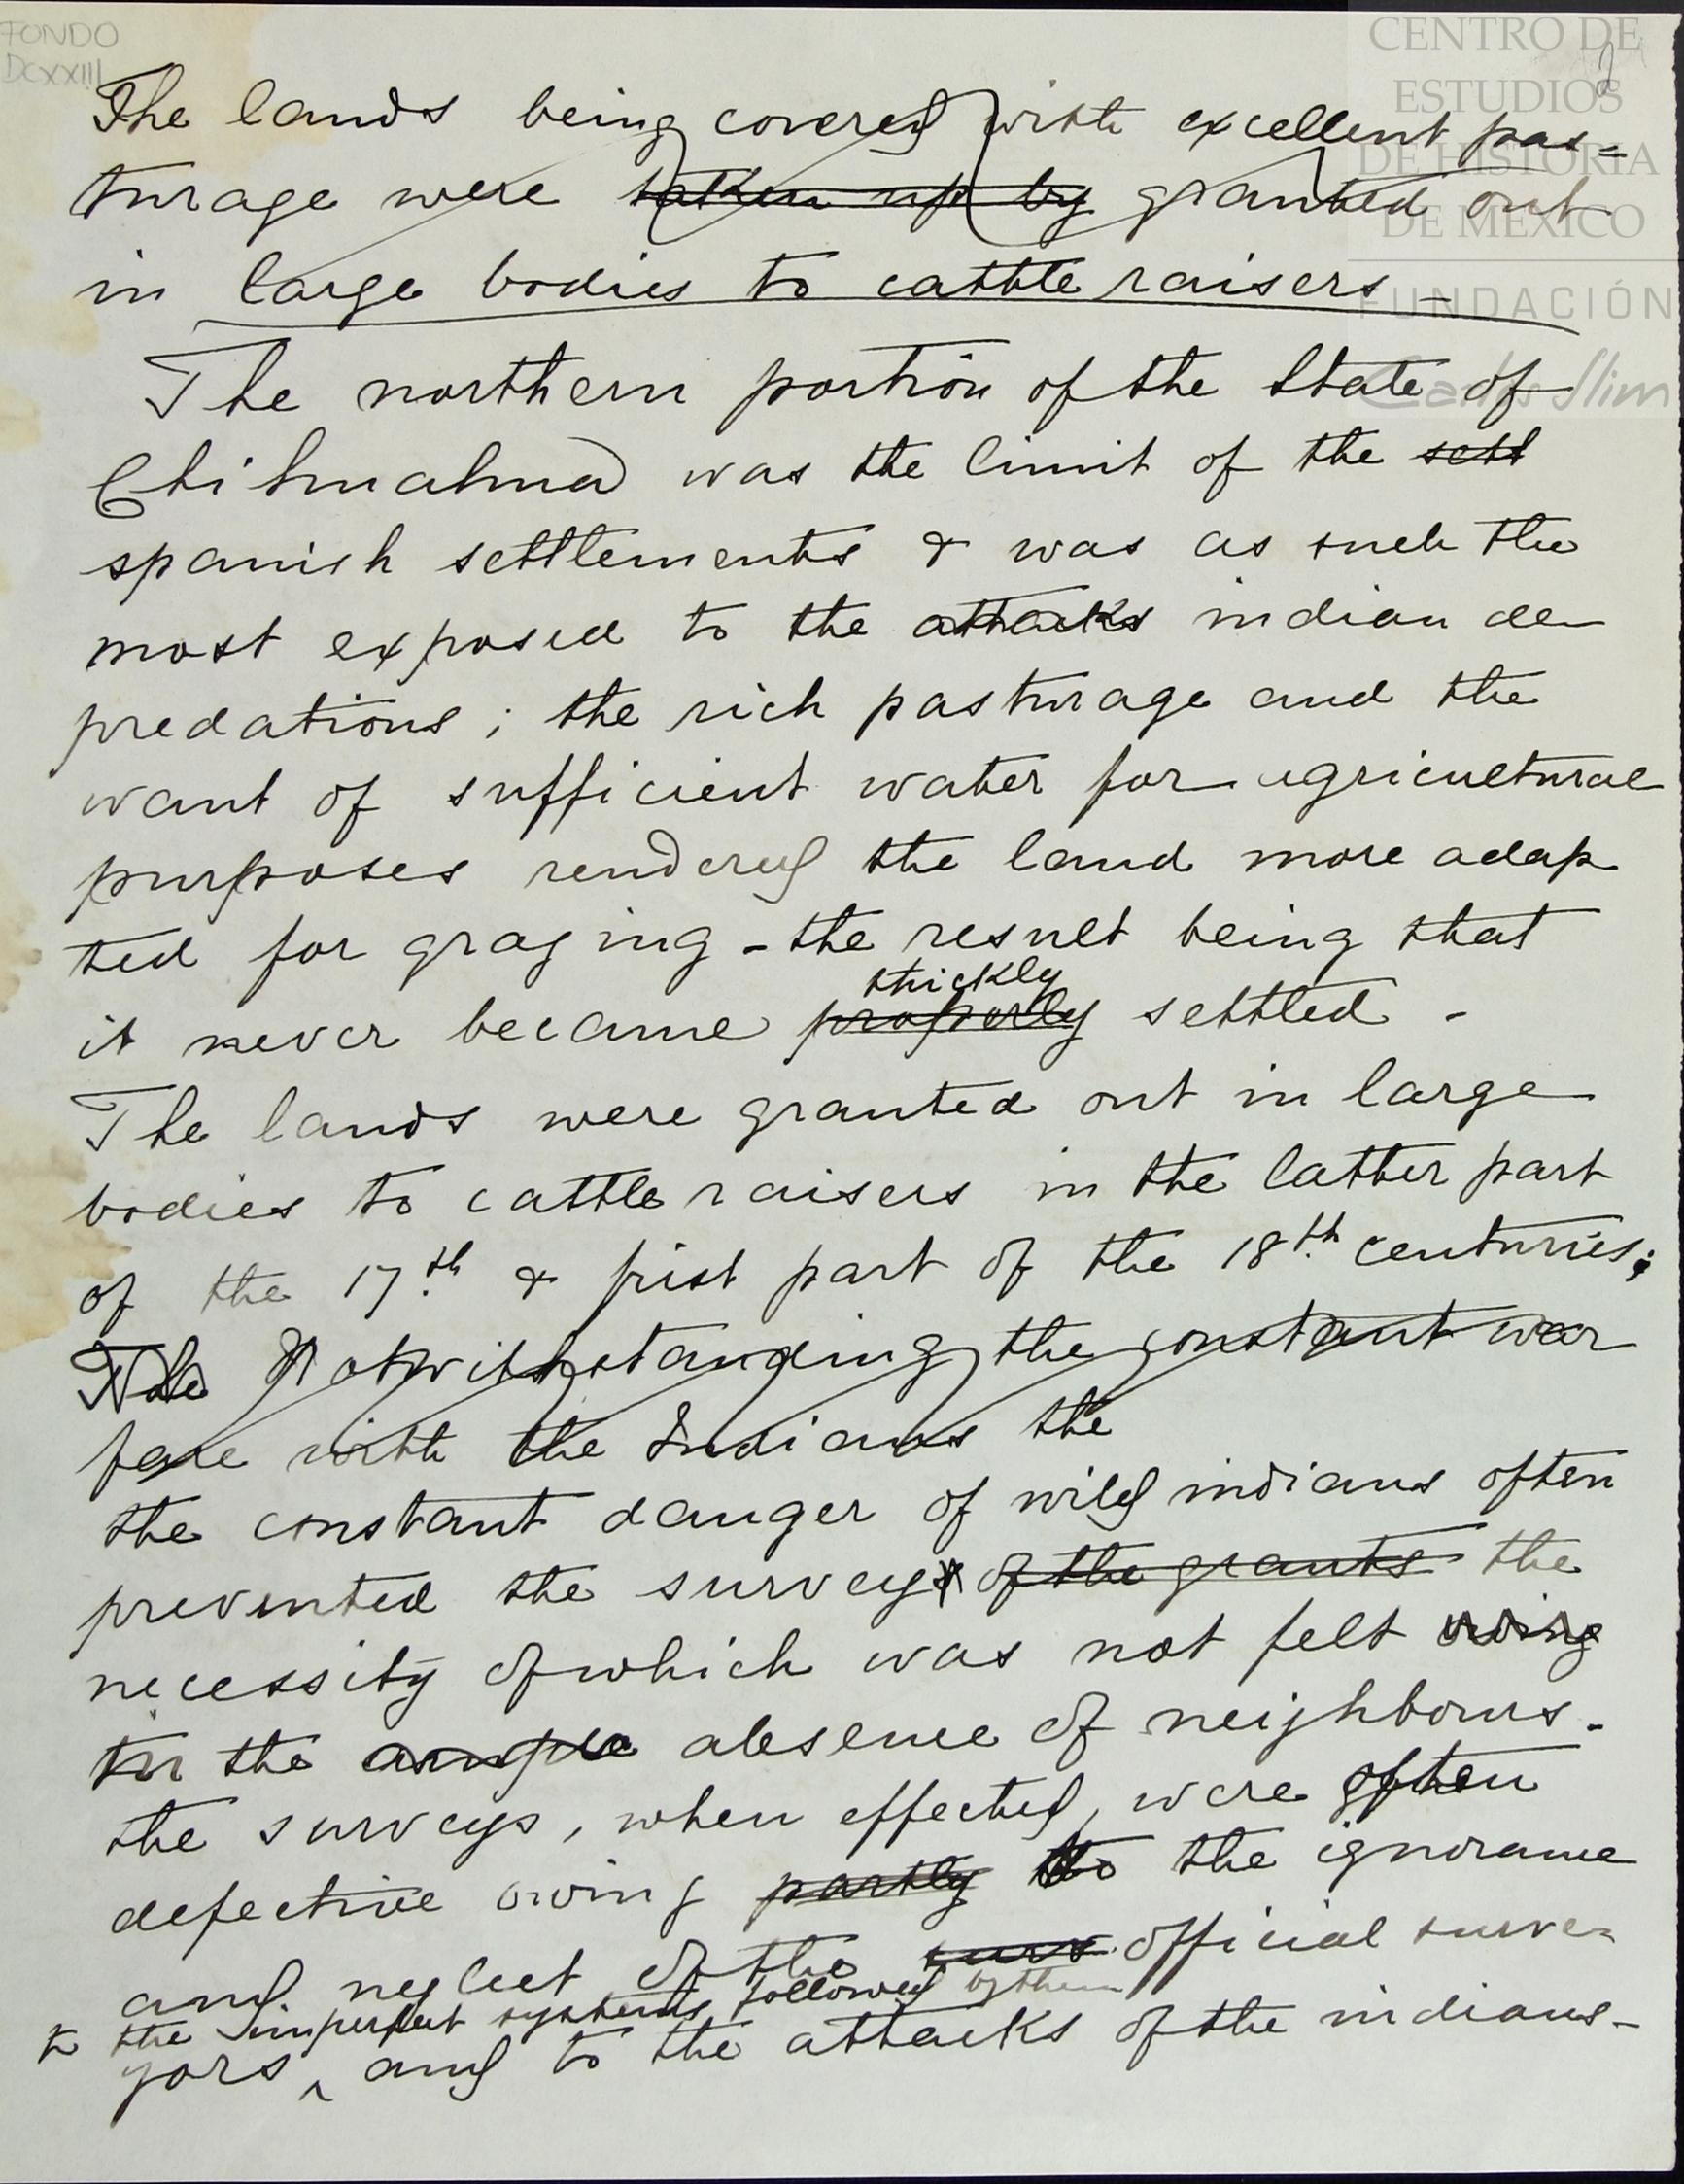 FONDO
DCXXIII
CENTRO DE
ESTUDIOS
DE HISTORIA
DE MEXICO
FUNDACIÓN
Carlos Slim
2
The lands being covered with excellent pas=
turage were taken up by granted out
in large bodies to cattle raisers -
The northern portion of the State of
Chihuahua was the limit of the settl
spanish settlements & was as such the
most exposed to the attacks indian de
predations; the rich pasturage and the
want of sufficient water for agricultural
purposes rendered the land more adap
ted for grazing - the result being that
thickly
it never became properly settled -
The lands were granted out in large
bodies to cattle raisers in the latter part
of the 17th & first part of the 18th centuries;
The Notwithstanding the constant war
fare with the Indians the
the constant danger of wild indians often
prevented the surveys of the grants the
necessity of which was not felt owing
in the absence of neighbours.
the surveys, when effected, were often
defective owing partly to the ignorance
and neglect of the surv official surve=
to the imperfect systems followed by them
yors, ^ and to the attacks of the indians -